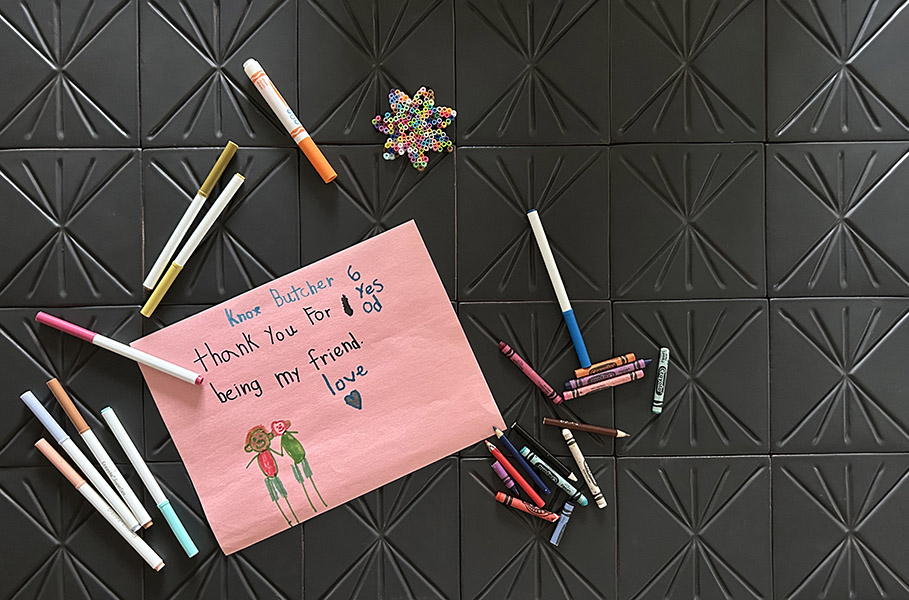 Knox Butcher 6
Yes
od
thank You For
being my friend.
love